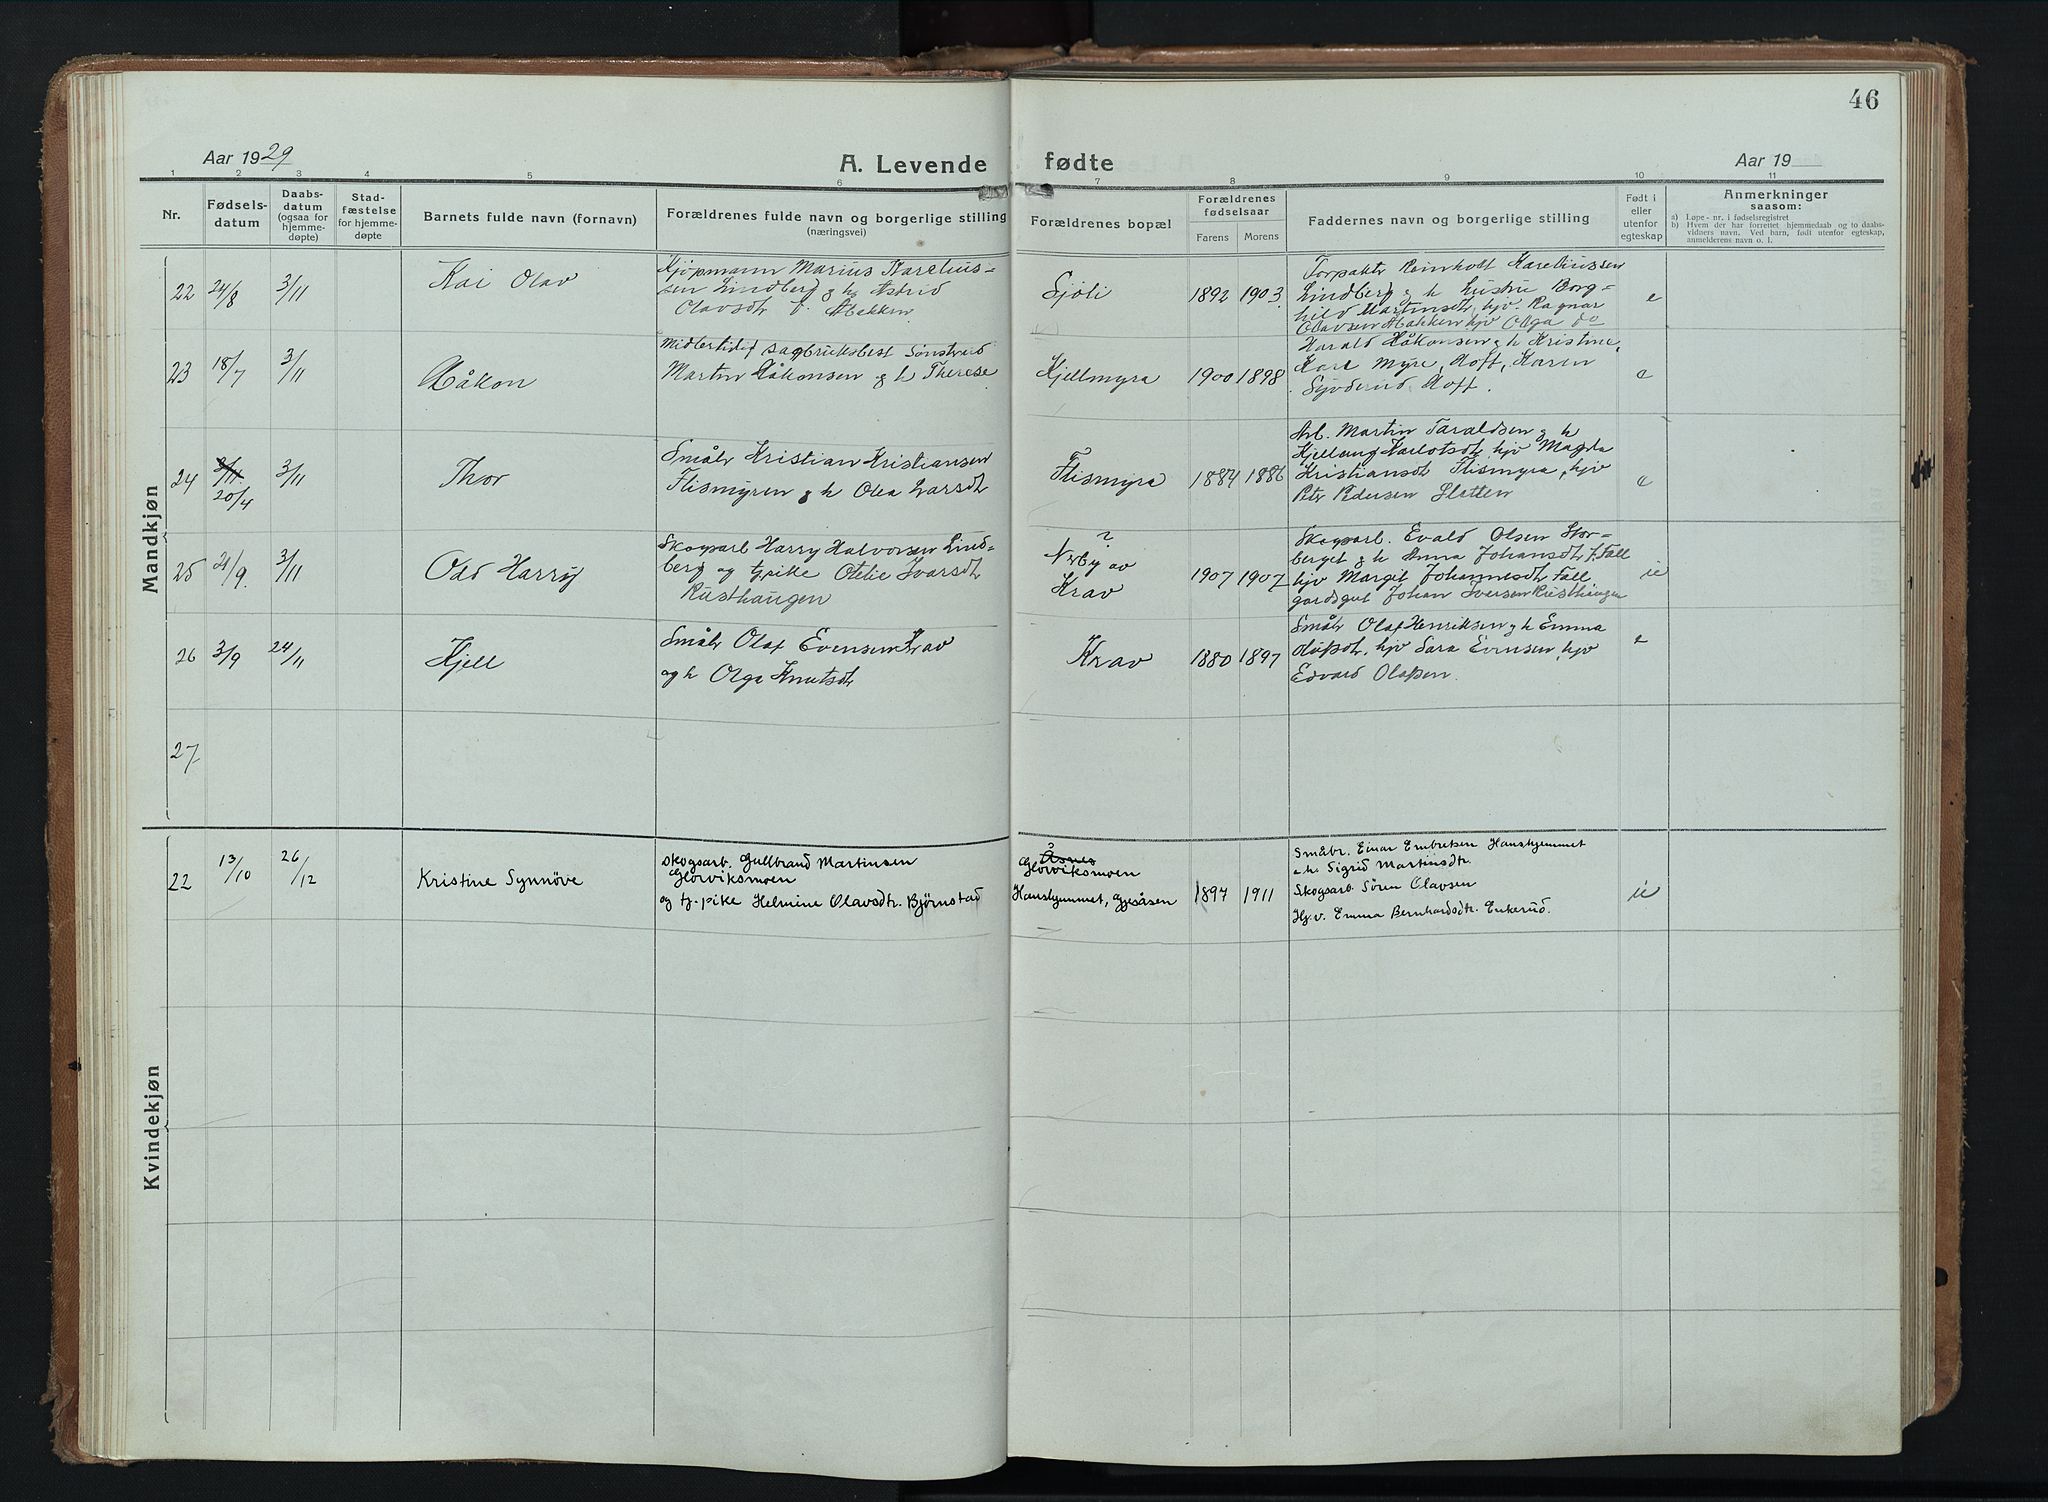 46
Aar 1929
A. Levende fødte
Aar 19
1 2 3 4 5 6 7 8 9 10 11
Nr.
Fødsels-
datum
Daabs-
datum
(ogsaa for
hjemme-
døpte)
Stad-
fæstelse
for hjemme-
døpte
Barnets fulde navn (fornavn)
Forældrenes fulde navn og borgerlige stilling
(næringsvei)
Forældrenes bopæl
Forældrenes
fødselsaar
Farens Morens
Faddernes navn og borgerlige stilling
Født i
eller
utenfor
egteskap
Anmerkninger
saasom:
a) Løpe-nr. i fødselsregistret
b) Hvem der har forrettet hjemmedaab og to daabs-
vidners navn. Ved barn, født utenfor egteskap,
anmelderens navn o. l.
Mandkjøn
22 24/8 3/11
Kai Olav
Kjøpmann Marius Karelius-
sen Lindberg g h Astrid
Olavsdtr Bakken
Sjøli
1892 1903
Forpakter Reinholt Kareliussen
Lindberg g h Hustru Borg-
hild Martinsdtr, hjv. Ragnar
Olavsen Bakken hjv Olga do
e
23 18/7 3/11
Håkon
Midlertidig sagbruksbest Sønsterud
Martin Håkonsen g h Therese
Kjellmyra
1900 1898
Harald Håkonsen g h Kristine,
Karl Myre, Hoff, Karen
Hoff.
e
24 3/11 3/11
20/4
Thor
Småbr Kristian Kristiansen
Flismyren g h Olea Larsdtr
Flismyra
1884 1886
Arb. Martin Taraldsen g h
Karlotsdtr hjv Magda
Kristiansdt Flismyra, hjv
Petr Pedersen Sletten
e
25 21/9. 3/11
Odd Harry
Skogsarb Harry Halvorsen Lind-
berg og tj.pike Otelie Ivarsdtr
Rusthaugen
?
Nerby av
Krav
1907 1907
Skogsarb. Evald Olsen Stor-
berget g h Anna Johansdtr Fall
hjv Margit Johannesdtr Fall
gardsgut Johan Iversen Rusthaugen
ie
26 3/9 24/11
Kjell
Småbr Olaf Evensen Krav
og h Olga Knutsdtr
Krav
1880 1897
Småbr Olaf Henriksen g h Emma
Olufsdt, hjv Sara Evensen, hjv
Edvard Olafsen.
e
27
Kvindekjøn
22 13/10 26/12
Kristine Synnöve
Skogsarb. Gullbrand Martinsen
Glorviksmoen
og tj.-pike Helmine Olavsdtr. Björnstad
Åsnes
Glorviksmoen
Hanshjemmet, Gjesåsen
1897 1911
Småbr. Einar Embretsen Hanshjemmet
o h. Sigrid Martinsdtr.
Skogsarb Sören Olavsen
Hj.v. Emma Bernhardsdtr. Enkerud.
ie